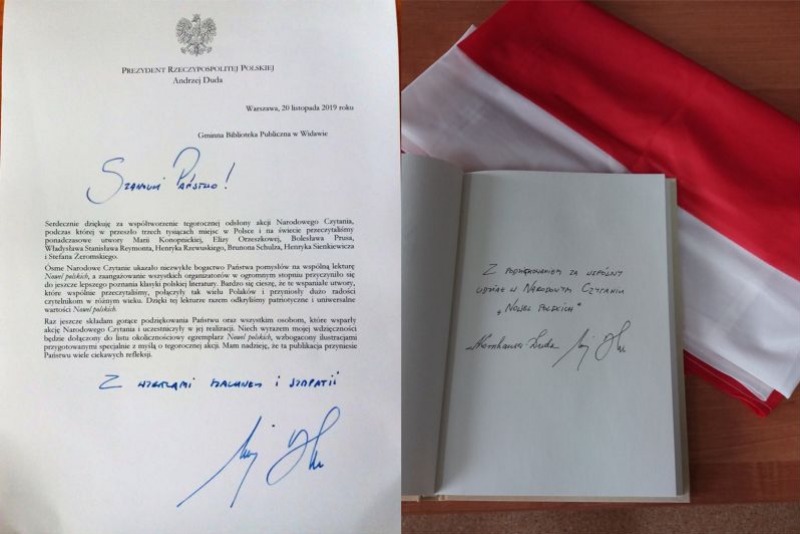 PREZYDENT RZECZYPOSPOLITEJ POLSKIEJ
Andrzej Duda
Warszawa, 20 listopada 2019 roku
Gminna Biblioteka Publiczna w Widawie
Szanowni Państwo!
Serdecznie dziękuję za współtworzenie tegorocznej odsłony akcji Narodowego Czytania,
podczas której w przeszło trzech tysiącach miejsc w Polsce i na świecie przeczytaliśmy
ponadczasowe utwory Marii Konopnickiej, Elizy Orzeszkowej, Bolesława Prusa,
Władysława Stanisława Reymonta, Henryka Rzewuskiego, Brunona Schulza, Henryka Sienkiewicza
i Stefana Żeromskiego.
Ósme Narodowe Czytanie ukazało niezwykłe bogactwo Państwa pomysłów na wspólną lekturę
Nowel polskich, a zaangażowanie wszystkich organizatorów w ogromnym stopniu przyczyniło się
do jeszcze lepszego poznania klasyki polskiej literatury. Bardzo cieszę, że te wspaniałe utwory,
które wspólnie przeczytaliśmy, połączyły tak wielu Polaków i przyniosły dużo radości
czytelnikom w różnym wieku. Dzięki tej lekturze razem odkryliśmy patriotyczne i uniwersalne
wartości Nowel polskich.
Raz jeszcze składam gorące podziękowania Państwu oraz wszystkim osobom, które wsparły
akcję Narodowego Czytania i uczestniczyły w jej realizacji. Niech wyrazem mojej wdzięczności
będzie dołączony do listu okolicznościowy egzemplarz Nowel polskich, wzbogacony ilustracjami
przygotowanymi specjalnie z myślą o tegorocznej akcji. Mam nadzieję, że ta publikacja przyniesie
Państwu wiele ciekawych refleksji.
Z wyrazami szacunku i sympatii
Z podziękowaniem za wspólny
udział w Narodowym Czytaniu
„Nowel polskich"
Duda